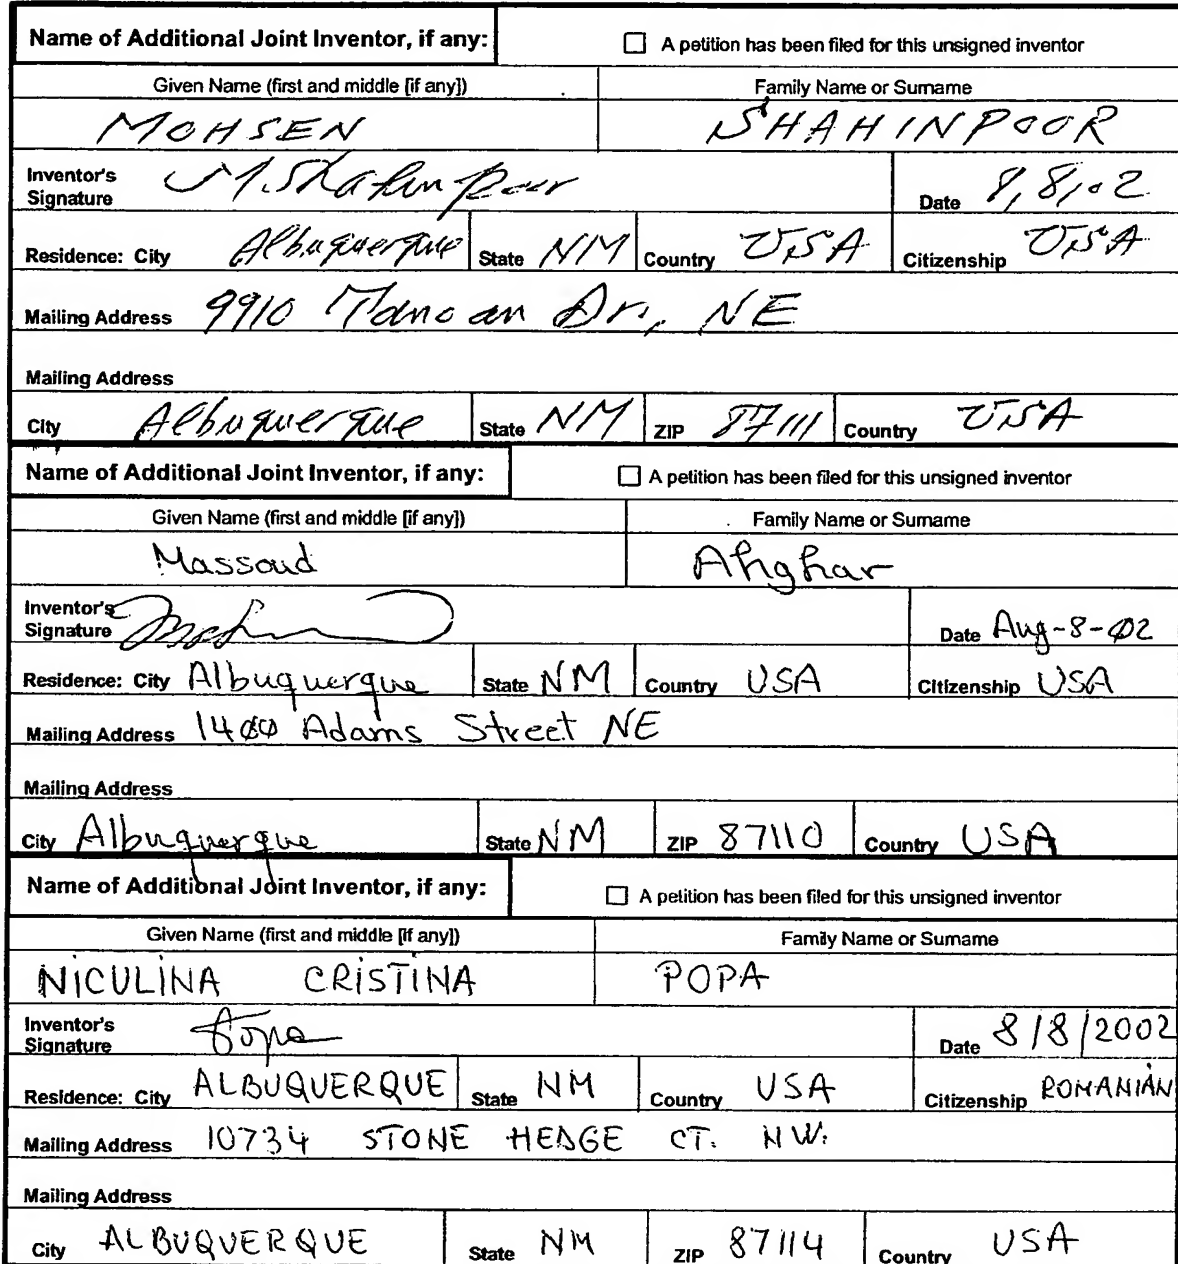 Name of Additional Joint Inventor, if any: ☐ A petition has been filed for this unsigned inventor
Given Name (first and middle [if any]) Family Name or Surname
MOHSEN SHAHINPOOR
Inventor's Signature M. Shahinpoor Date 8,8,02
Residence: City Albuquerque State NM Country USA Citizenship USA
Mailing Address 9910 Tanoan Dr., NE
Mailing Address
City Albuquerque State NM ZIP 87111 Country USA
Name of Additional Joint Inventor, if any: ☐ A petition has been filed for this unsigned inventor
Given Name (first and middle [if any]) Family Name or Surname
Massoud Ahghar
Inventor's Signature Date Aug-8-02
Residence: City Albuquerque State NM Country USA Citizenship USA
Mailing Address 1400 Adams Street NE
Mailing Address
City Albuquerque State NM ZIP 87110 Country USA
Name of Additional Joint Inventor, if any: ☐ A petition has been filed for this unsigned inventor
Given Name (first and middle [if any]) Family Name or Surname
NICULINA CRISTINA POPA
Inventor's Signature Popa Date 8/8/2002
Residence: City ALBUQUERQUE State NM Country USA Citizenship ROMANIAN
Mailing Address 10734 STONE HEDGE CT. NW.
Mailing Address
City ALBUQUERQUE State NM ZIP 87114 Country USA